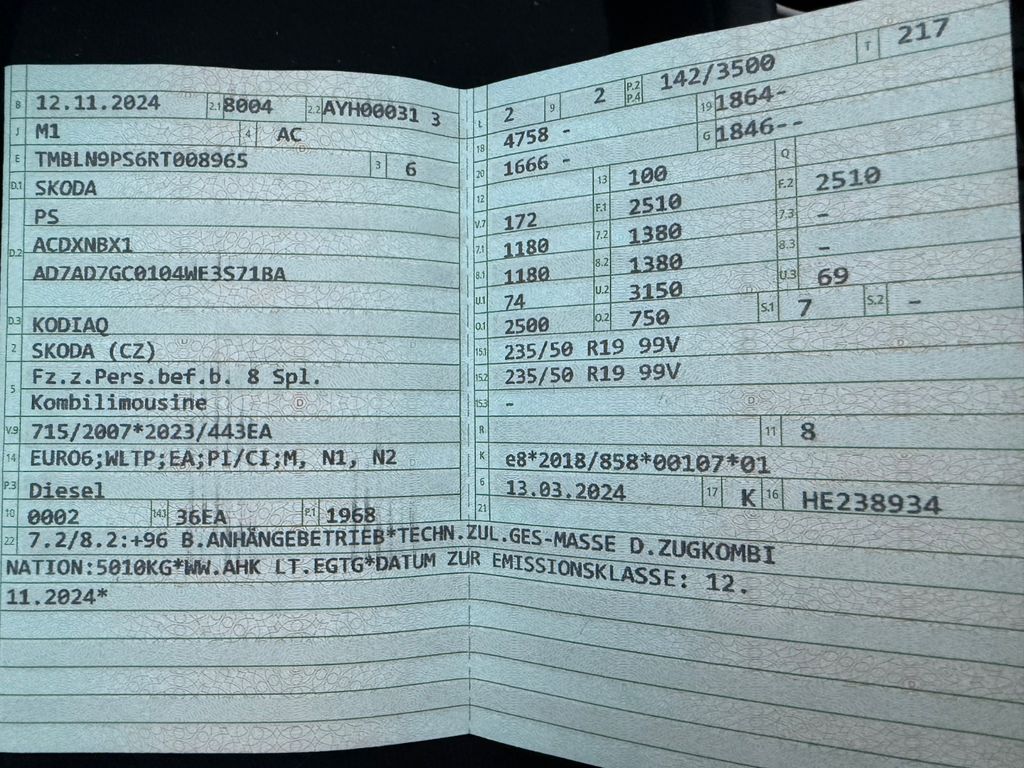 B 12.11.2024 2.1 8004 2.2 AYH00031 3
J M1 4 AC
E TMBLN9PS6RT008965 3 6
D.1 SKODA
PS
D.2 ACDXNBX1
AD7AD7GC0104WF3S71BA
D.3 KODIAQ
2 SKODA (CZ)
5 Fz.z.Pers.bef.b. 8 Spl.
Kombilimousine
V.9 715/2007*2023/443EA
14 EURO6;WLTP;EA;PI/CI;M, N1, N2
P.3 Diesel
10 0002 14.1 36EA P.1 1968
L 2 9 2 P.2 P.4 142/3500 T 217
18 4758 - 19 1864-
20 1666 - G 1846--
12 13 100 Q
V.7 172 F.1 2510 F.2 2510
7.1 1180 7.2 1380 7.3 -
8.1 1180 8.2 1380 8.3 -
U.1 74 U.2 3150 U.3 69
O.1 2500 O.2 750 S.1 7 S.2 -
15.1 235/50 R19 99V
15.2 235/50 R19 99V
15.3 -
R 11 8
K e8*2018/858*00107*01
6 13.03.2024 17 K 16 HE238934
21
22 7.2/8.2:+96 B.ANHÄNGEBETRIEB*TECHN.ZUL.GES-MASSE D.ZUGKOMBI
NATION:5010KG*WW.AHK LT.EGTG*DATUM ZUR EMISSIONSKLASSE: 12.
11.2024*